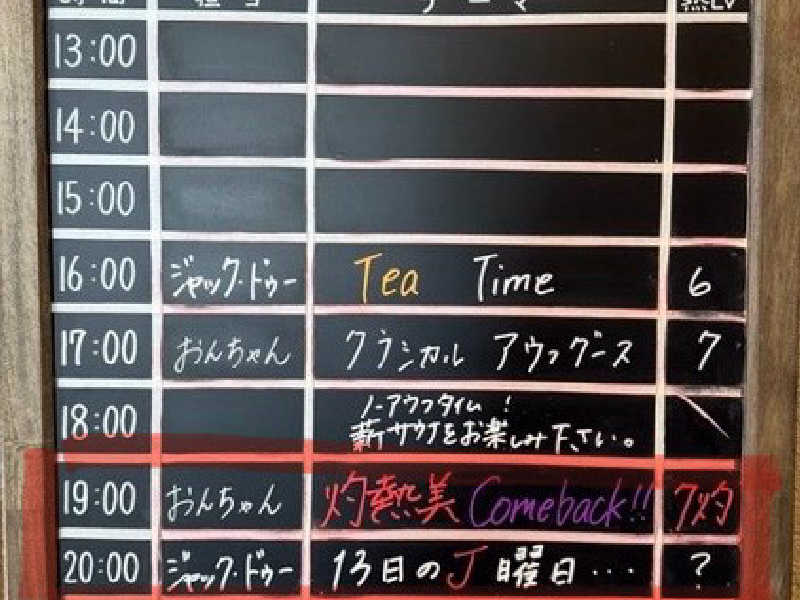 テーマ 熱LV
13:00
14:00
15:00
16:00 ジャック・ドゥー Tea Time 6
17:00 おんちゃん クラシカル アウフグース 7
18:00 ノーアウフタイム！
薪サウナをお楽しみ下さい。
19:00 おんちゃん 灼熱美 Comeback!! 7灼
20:00 ジャック・ドゥー 13日のJ曜日・・・ ?